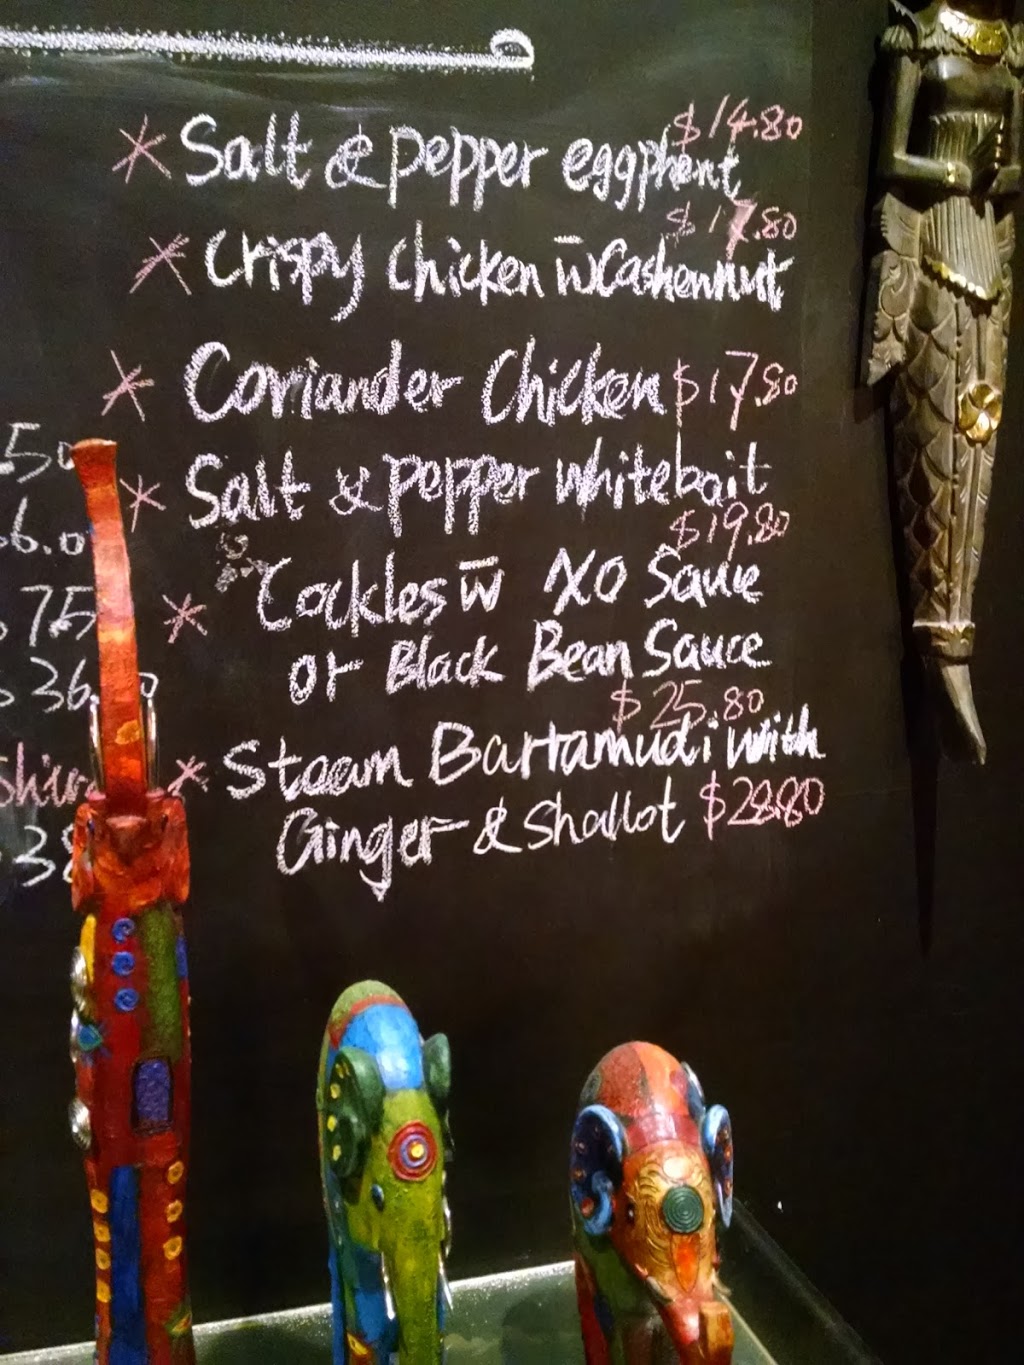 * Salt & pepper eggphent $14.80
* Crispy Chicken w̄ Cashewnut $17.80
* Coriander Chicken $17.80
* Salt & pepper Whitebait $19.80
* Cockles w̄ XO Sauce
or Black Bean Sauce $25.80
* Steam Bartamudi With
Ginger & Shallot $28.80
.50
6.0
75
36.
Shira
38